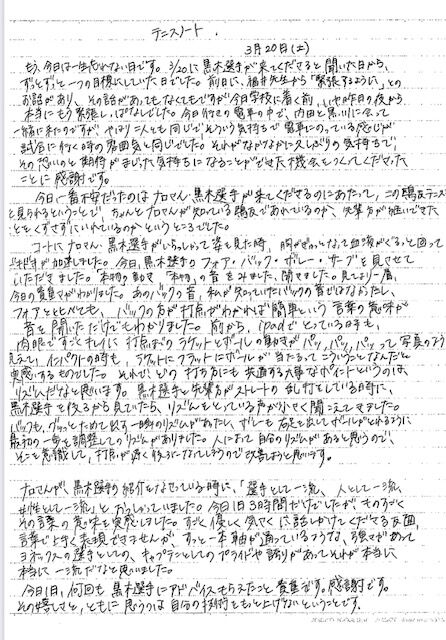 テニスノート.
3月20日(土)
もう、今日は一生忘れない日です。3/20に黒木選手が来てくださると聞いた日から、
ずっとずっと一つの目標にしていた日でした。前日に、福井先生から「緊張するように」との
お話があり、その話があってもなくてもですが今日学校に着く前、いや昨日の夜から
本当にもう緊張しっぱなしでした。今日行きの電車の中で、内田と黒川に会って
一緒に来たのですが、やはり二人とも同じでそういう気持ちで電車にのっている感じが
試合に行く時の雰囲気と同じでした。それがなかなかに久しぶりの気持ちで、
その思いのと期待がまじった気持ちになることができた機会をつくってくださった
ことに感謝です。
今日一番不安だったのはナカマん、黒木選手が来てくださるのにあたって、この鴎友テニス
を見られるということで、ちゃんとナカマんが知っている鴎友であれているのか、先輩方が継いできた
ことをくずさずにいれているのかというところでした。
コートにナカマん、黒木選手がいらっしゃった姿を見た時、胸がぎゅっとなって血液がぐるっと回って
ドキドキが加速しました。今日、黒木選手のフォア・バック・ボレー・サーブを見させて
いただきました。本物の動き、「本物」の音をみました、聞きました。見てより一層、
今日の貴重さがわかりました。あのバックの音、私が知っていたバックの音ではなかったし、
フォアと比べても、バックの方が打点がわかれば簡単という言葉の意味が
音を聞いただけでもわかりました。前から、ipadでとっている時も、
肉眼ですごくキレイに打点までのラケットとボールの動きが、パッ、パッ、パッって写真のよう
見えて、インパクトの時も、ラケットにフラットにボールが当たるってこういうことなんだと
実感するものでした。それで、どの打ち方にも共通する大事なポイントというのは、
リズムだなと思います。黒木選手と先輩方がストレートの乱打をしている時に、
黒木選手を後ろから見ていたら、リズムをとっている声が小さく聞こえてきました。
バックも、グッっとためて出す一瞬のリズムがあったし、ボレーも右足を出してボールがとれるように
最初の一歩を調整してのリズムがありました。人によって自分のリズムがあると思うので、
そこを意識して、打点が遅く後ろになってしまうので改善しようと思います。
ナカマんが、黒木選手の紹介をなさっている時に、「選手として一流、人として一流、
女性として一流」とおっしゃっていました。今日1日3時間だけでしたが、ものすごく
その言葉の意味を実感しました。すごく優しく気さくに話しかけてくださる反面、
言葉で上手く表現できませんが、ずっと一本軸が通っているような、強さがあって
ヨネックスの選手としての、キャプテンとしてのプライドや誇りがあってそれが本当に
本当に一流だなと思いました。
今日1日、何回も黒木選手にアドバイスもらえたこと貴重です。感謝です。
その嬉しさと、ともに思うのは自分の技術をもっと上げないということです。